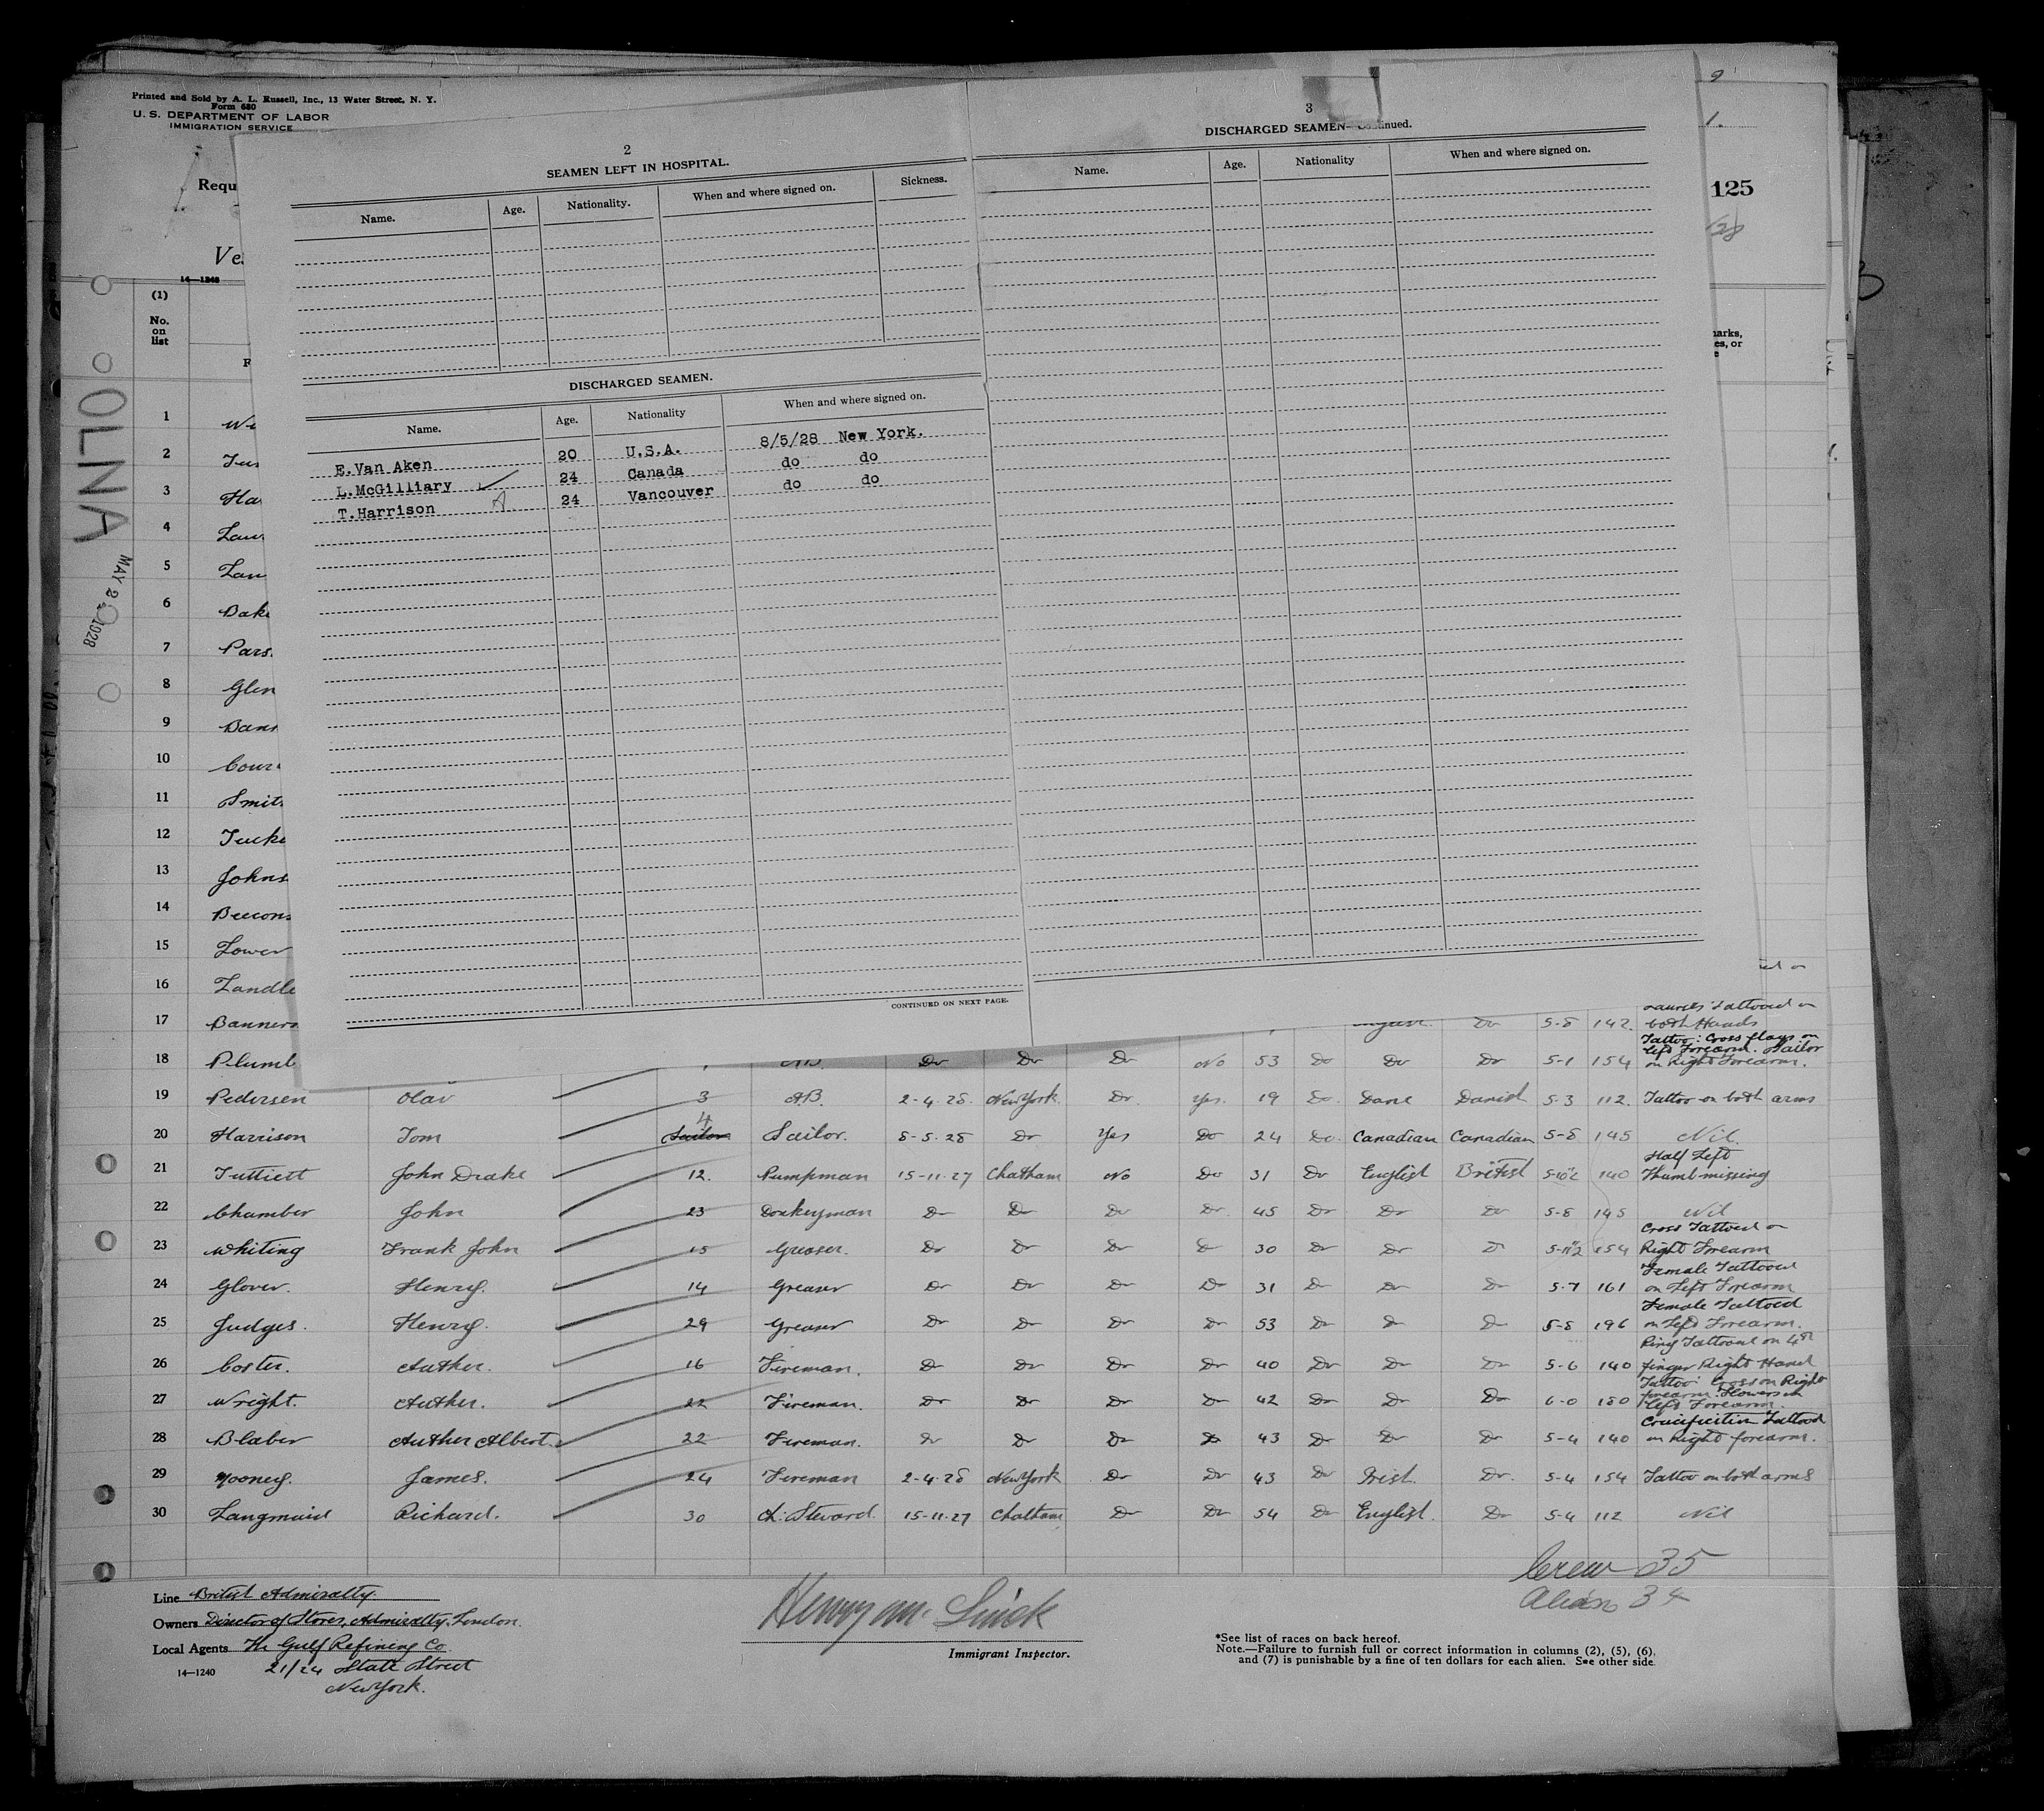 Printed and Sold by A. L. Russell, Inc., 13 Water Street, N. Y.
Form 680
U. S. DEPARTMENT OF LABOR
IMMIGRATION SERVICE
9
1.
Requ
125
28
Ve
14—1240
(1)
No. on list
F
marks,
es, or
e
OLNA
MAY 2 1928
2
SEAMEN LEFT IN HOSPITAL.
Name. Age. Nationality. When and where signed on. Sickness.
DISCHARGED SEAMEN.
Name. Age. Nationality When and where signed on.
E.Van Aken 20 U.S.A. 8/5/28 New York.
L.McGilliary 24 Canada do do
T.Harrison 24 Vancouver do do
CONTINUED ON NEXT PAGE.
3
DISCHARGED SEAMEN—Continued.
Name. Age. Nationality When and where signed on.
1 We
2
3 Ha
4
5
6 Bake
7 Pars
8 Glen
9 Bann
10 Cour
11 Smit
12 Tucke
13 Johns
14 Beecons
15 Lower
16 Landle
17 Banners Do 5-8 142. Tattooed on both Hands
18 Plumb A.B. Do Do Do No 53 Do Do Do 5-1 154 Tattoo: Cross flags on left Forearm. Sailor on Right Forearm.
19 Pedersen Olav 3 A.B. 2-4-28. New York Do. Yes. 19 Do. Dane Danish 5-3 112. Tattoo on both arms
20 Harrison Tom 4 Sailor Sailor. 8-5-28 Do Yes Do 24 Do. Canadian Canadian 5-8 145 Nil.
21 Tuttiett John Drake 12. Pumpman 15-11-27 Chatham No Do 31 Do English British 5-10½ 140 Half Left Thumb missing
22 Chamber John 23 Donkeyman Do Do Do Do 45 Do Do Do 5-8 145 Nil
23 Whiting Frank John 15 Greaser. Do Do Do Do 30 Do Do Do 5-11½ 154 Cross Tattooed on Right Forearm
24 Glover. Henry. 14 Greaser Do Do Do Do 31 Do Do Do 5-7 161 Female Tattooed on Left Forearm
25 Judges. Henry. 29 Greaser Do Do Do Do 53 Do Do Do 5-8 196 Female Tattoed on Left Forearm.
26 Coster. Auther. 16 Fireman. Do Do Do Do 40 Do Do Do 5-6 140 Ring Tattooed on 4th finger Right Hand
27 Wright. Auther. 22 Fireman. Do Do Do Do 42 Do Do Do 6-0 180 Tattoo: Cross on Right forearm. Flowers on Left Forearm.
28 Blaber Auther Albert. 22 Fireman. Do Do Do Do 43 Do Do Do 5-4 140 Crucifiction Tattood on Right forearm.
29 Mooney. James. 24 Fireman 2-4-28 New York Do Do 43 Do Irish. Do. 5-4 154 Tattoo on both arms
30 Langmaid Richard. 30 Ch: Steward. 15-11-27 Chatham Do Do 54 Do English. Do 5-4 112 Nil
Crew 35
Aliens 34
Line British Admiralty.
Owners Director of Stores, Admiralty, London.
Local Agents The Gulf Refining Co.
14—1240 21/24 State Street
New York.
Immigrant Inspector.
*See list of races on back hereof.
Note.—Failure to furnish full or correct information in columns (2), (5), (6),
and (7) is punishable by a fine of ten dollars for each alien. See other side